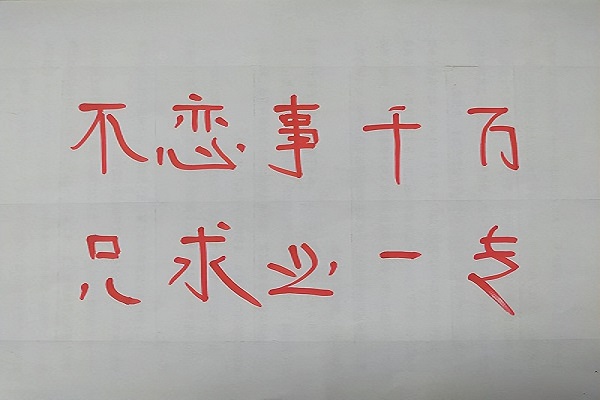 不恋事千万
只求必一专